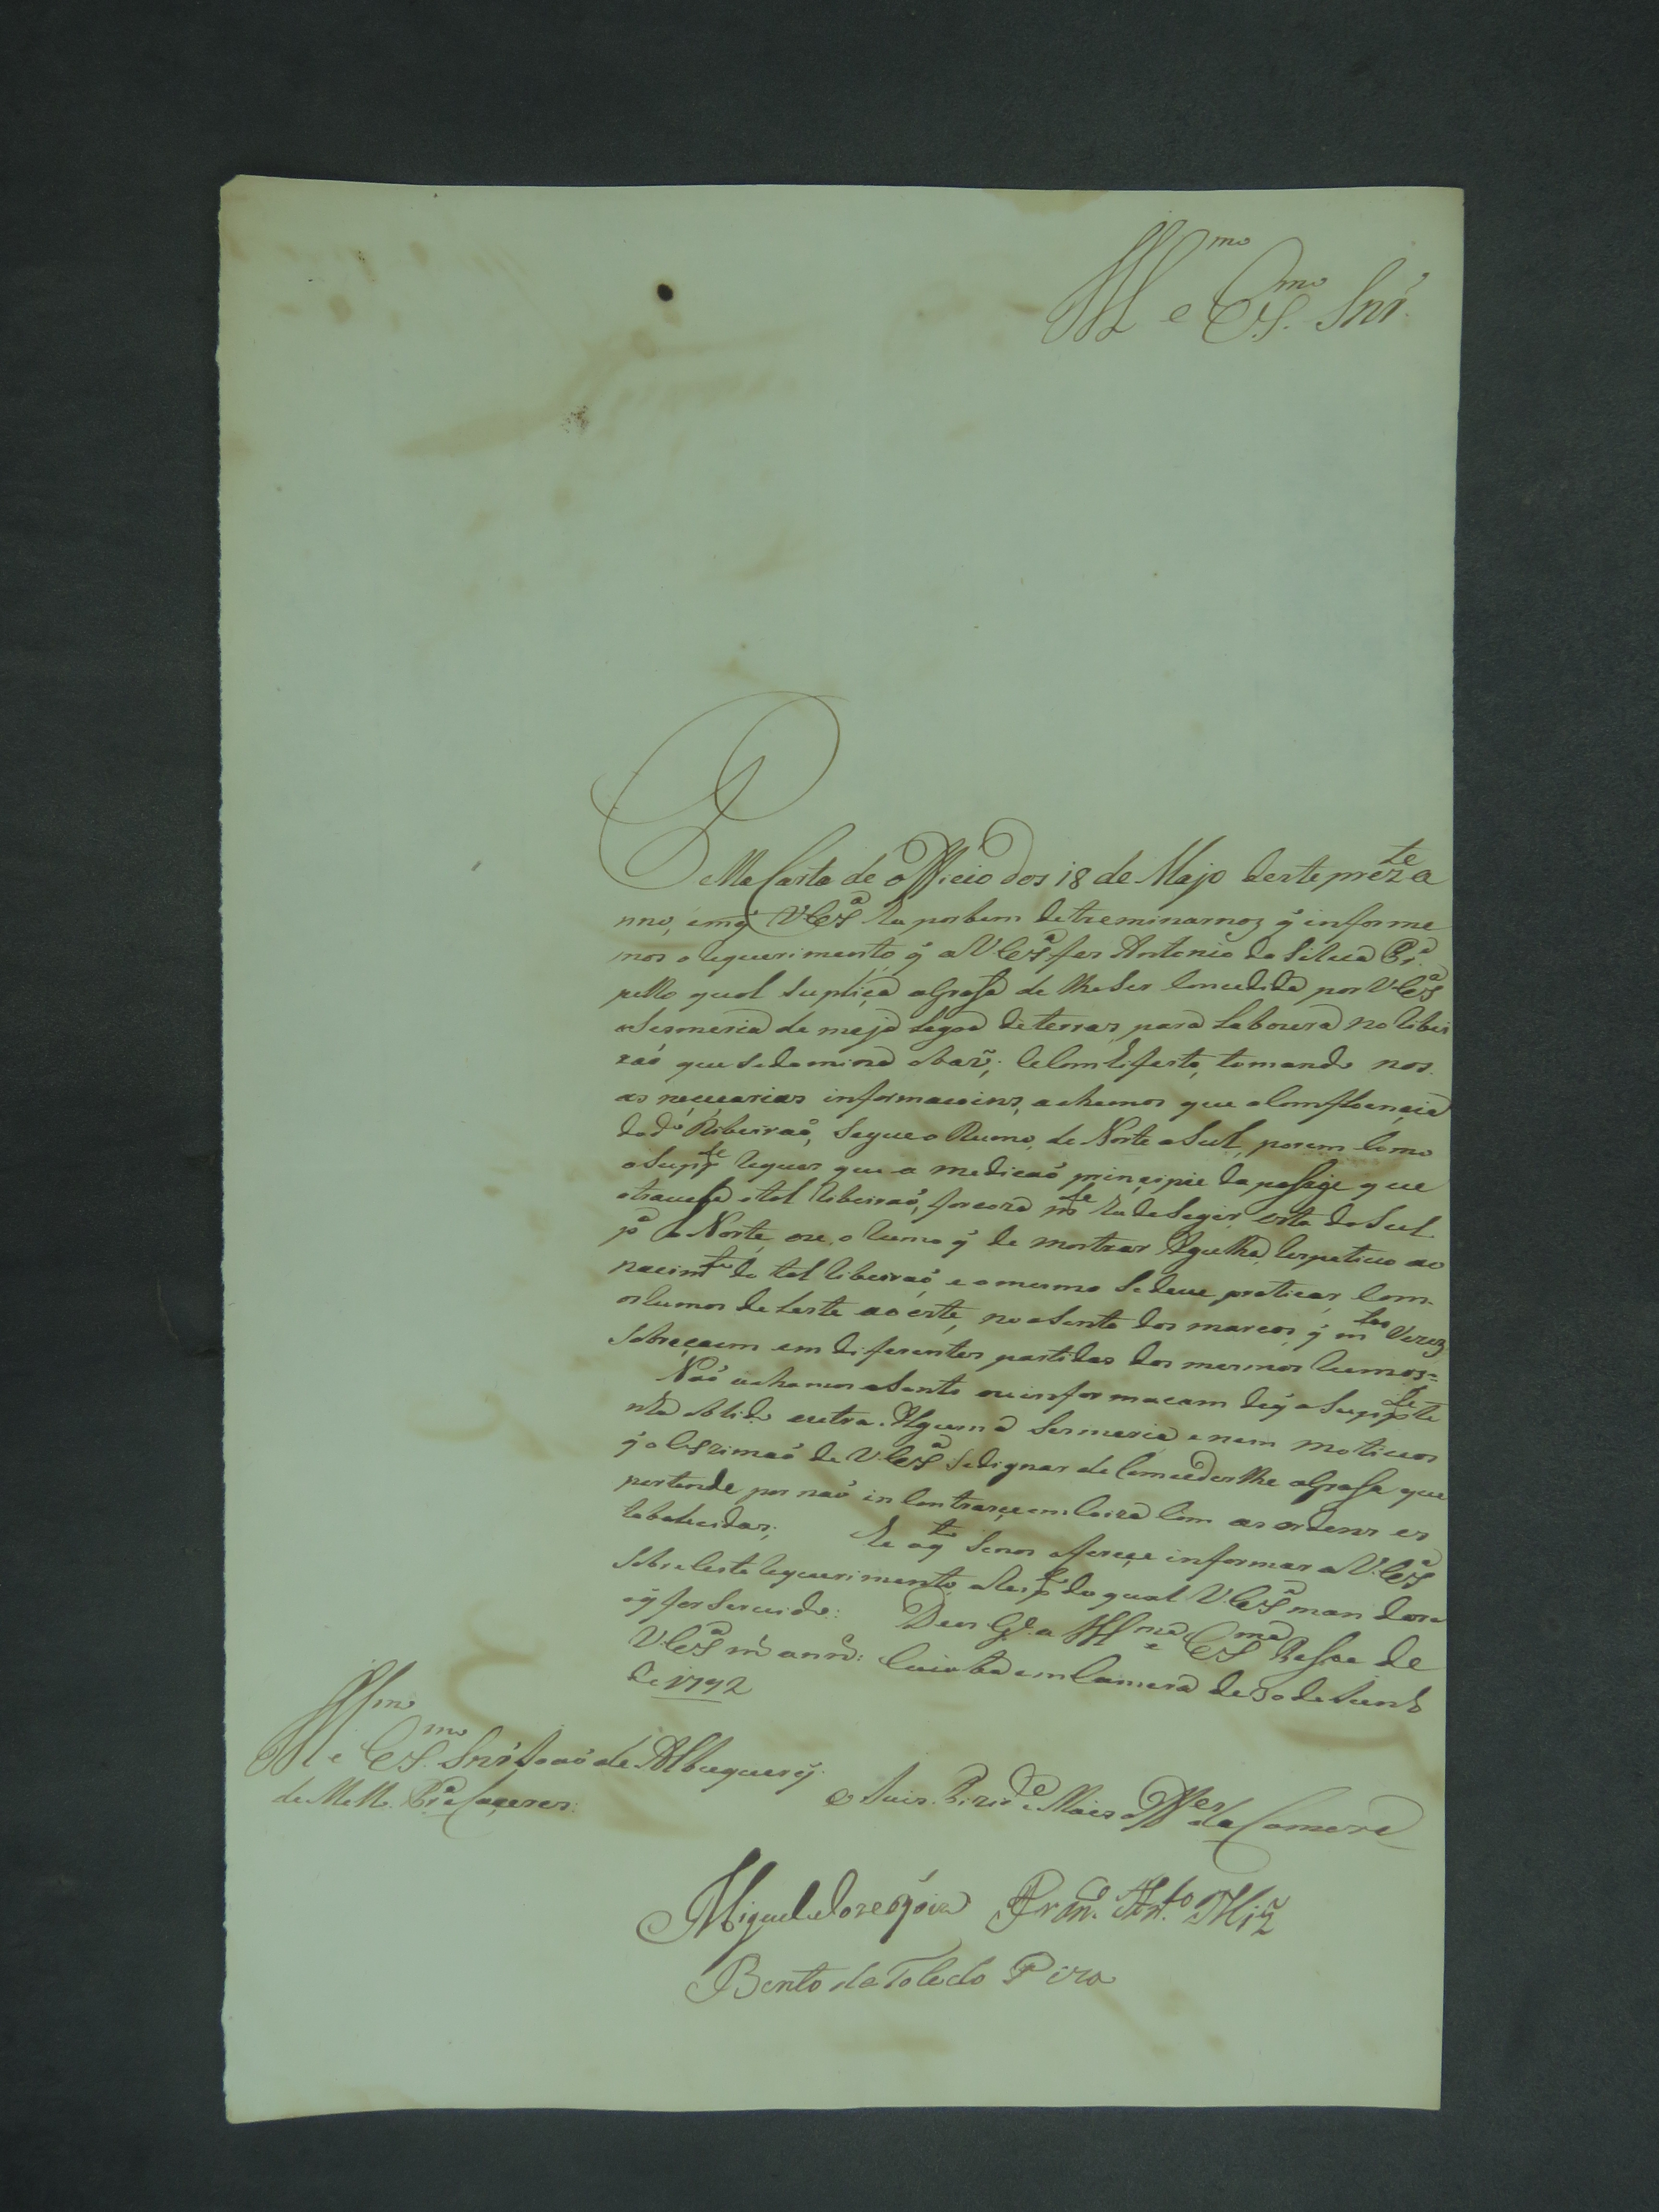 Ill.mo e Ex.mo Snr.
Em Carta de officio dos 18 de Majo deste prez.te a
nno, em q̃ V Ex.ª ha por bem detreminarnoz q̃ informe
mos o requerimento q̃ a V Ex.ª fes Antonio da Silva Pr.ª
pello qual suplica a Grasa de lhe ser concedida por V Ex.ª
a Sesmeria de meja Legoa de terras para Laboura no ribei
rão que se domina o ; e com efeito, tomando nos
as neçecarias informacoins, achamos que a Comfloençia
do d.º Ribeirão, segue o Rumo, de Norte a Sul, porem como
o Supp.te requer que a medicão prinçipie da pasage que
atravesa o tal ribeirão, forcoza m.te ha de segir esta do Sul
p.ª o Norte, ou, o rumo q̃ de mostrar Agulha, respetivo ao
nacim.to do tal ribeirão, e o mesmo se deve praticar, com
os rumos de Leste a oeste, no asento dos marcos, q̃ m.tas vezes
sobreçaem em diferentes partidas dos mesmos rumos =
Não achamos asento ou informacam de q̃ o Supp.te
tenha obtido outra Alguma Sesmeria e nem motivos
q̃ o de V Ex.ª se dignar de Comcederlhe a Grasa que
pertende por não incontrarçe em Coiza com as ordens es
tabalecidas; He o q̃ to Senos ofereçe informar a V. Ex.ª
sobre este requerimento, a do qual V. Ex.ª mandara
o q̃ for servido: Deus G.e a Ill.ma e Ex.ma Pesoa de
V. Ex.ª m.s ann.s: Cuiaba em Camera de 30 de Junho
de 1792
Ill.mo e Ex.mo Snr. João de Albuquerq̃
de Mello Pr.ª e Caçeres:
O Juis Prezid.e e Mais Off.es da Camera
Miguel Joze Fran.co Ant.to Miz
Bento de Toledo Piza